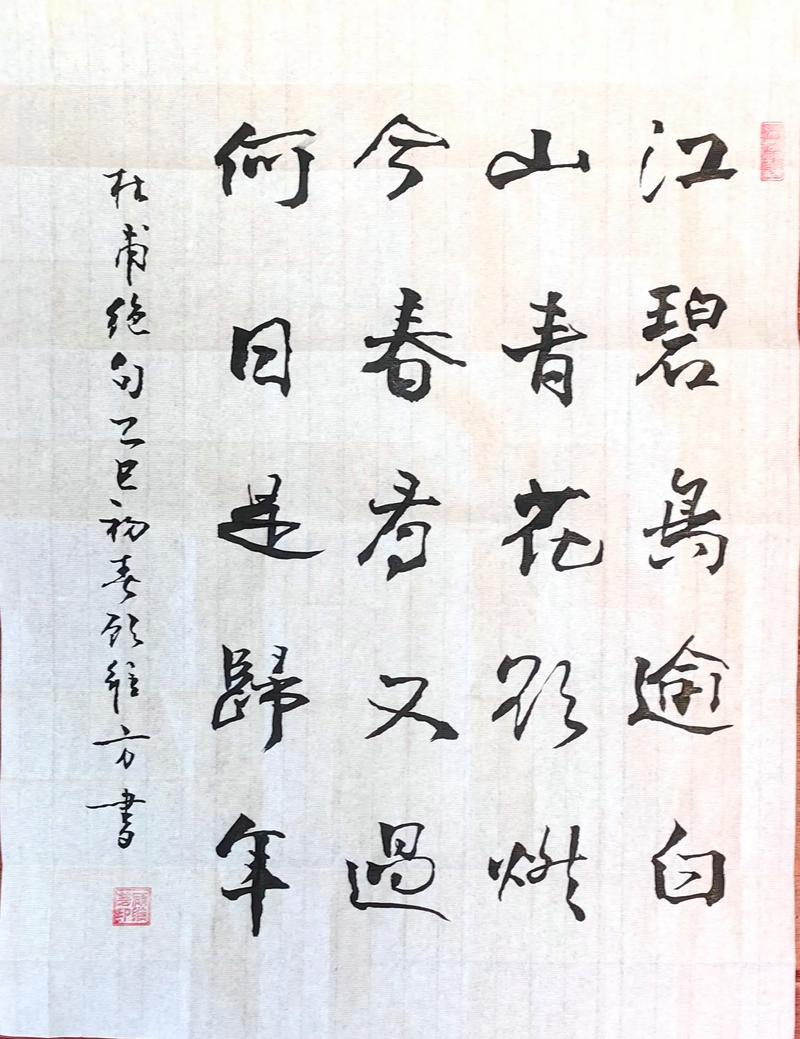 江碧鳥逾白
山青花欲燃
今春看又過
何日是歸年
杜甫絶句乙巳初春顾维方書